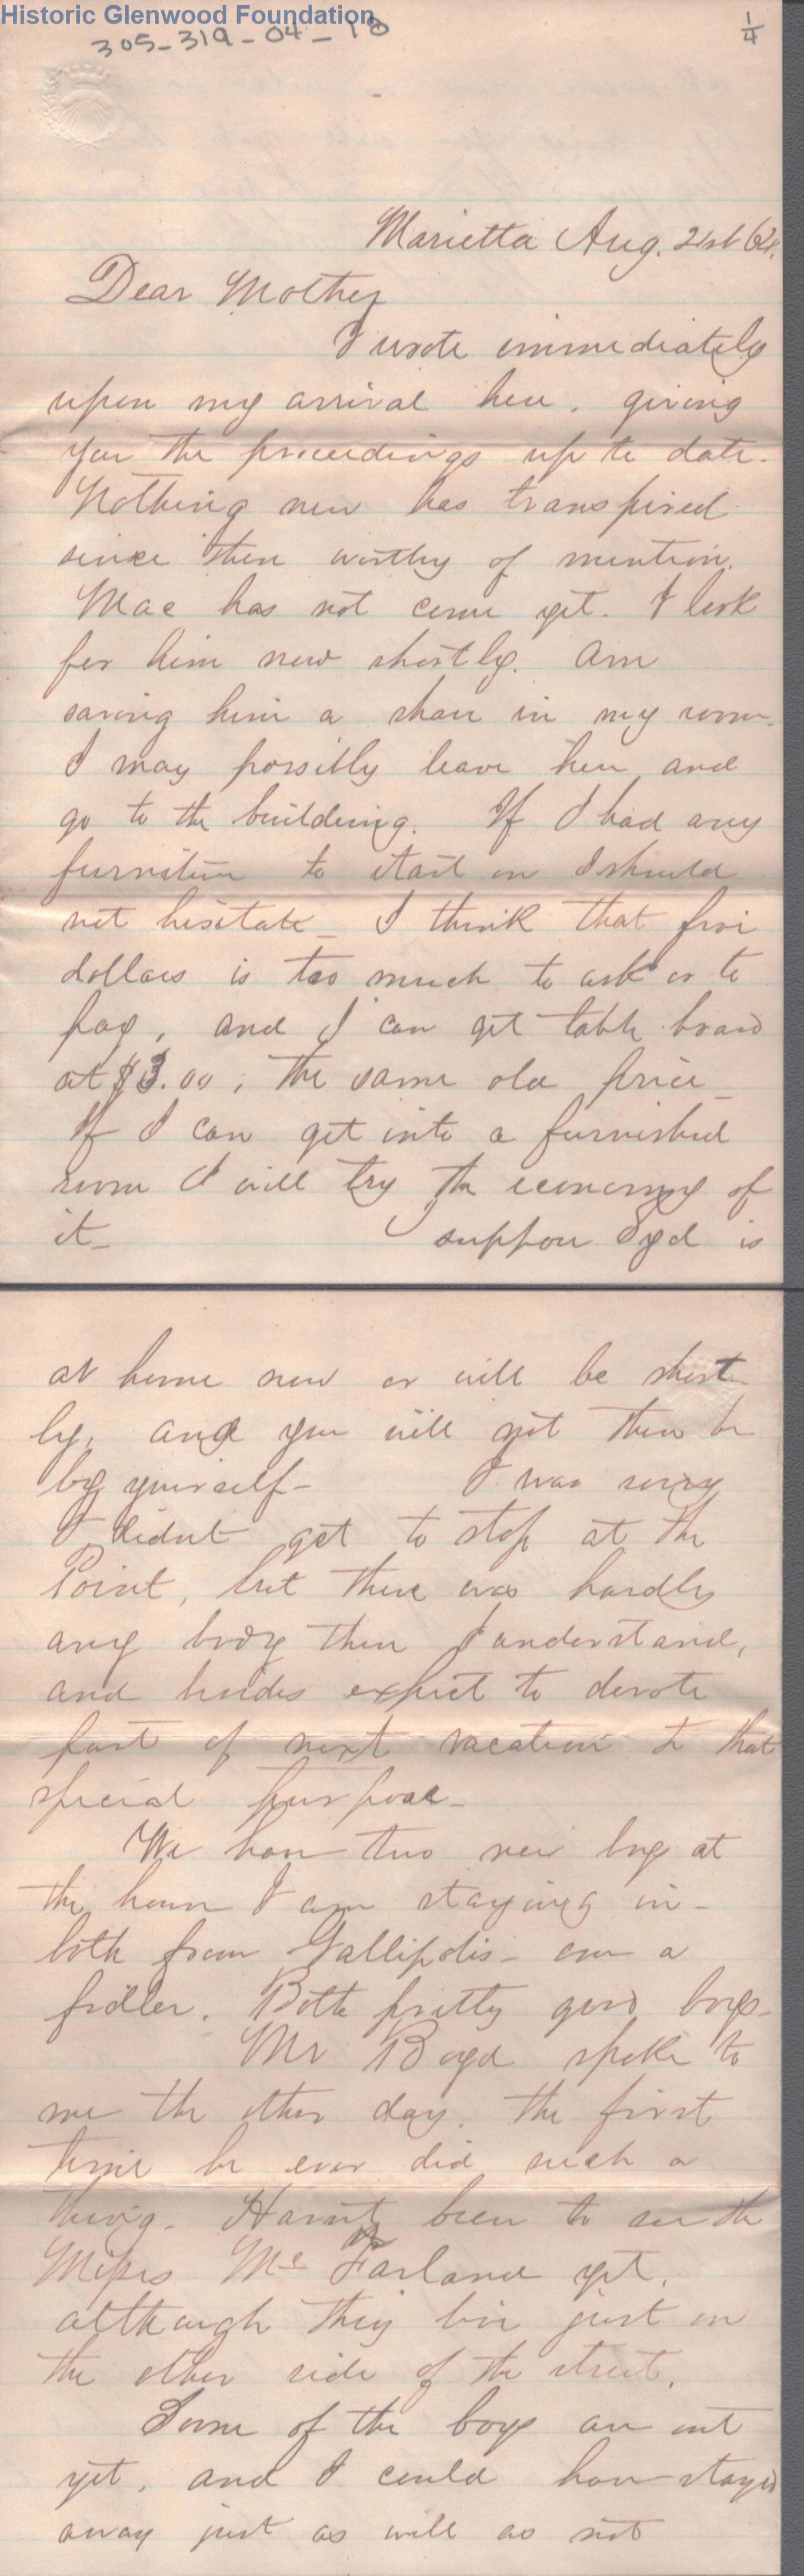 Historic Glenwood Foundation
305-319-04-18
1/4
Marietta Aug. 21st 64.
Dear Mother
I wrote immediately
upon my arrival here. giving
you the proceedings up to date.
Nothing new has transpired
since then worthy of mention.
Mac has not come yet. I look
for him now shortly. Am
saving him a share in my room.
I may possibly leave here and
go to the building. If I had any
furniture to start on I should
not hesitate_ I think that five
dollars is too much to ask or to
pay, and I can get table board
at $3.00, the same old price_
If I can get into a furnished
room I will try the economy of
it_ I suppose Syd is
at home now or will be short
ly, and you will not then be
by yourself- I was sorry
I didnt get to stop at the
Point, but there was hardly
any body there I understand,
and besides expect to devote
part of next vacation to that
special purpose_
We have two new boys at
the house I am staying in-
both from Gallipolis- one a
fidler. Both pretty good boys-
Mr Boyd spoke to
me the other day. the first
time he ever did such a
thing- Havnt been to see the
Misses McFarland yet.
although they live just on
the other side of the street.
Some of the boys are out
yet, and I could have stayed
away just as well as not